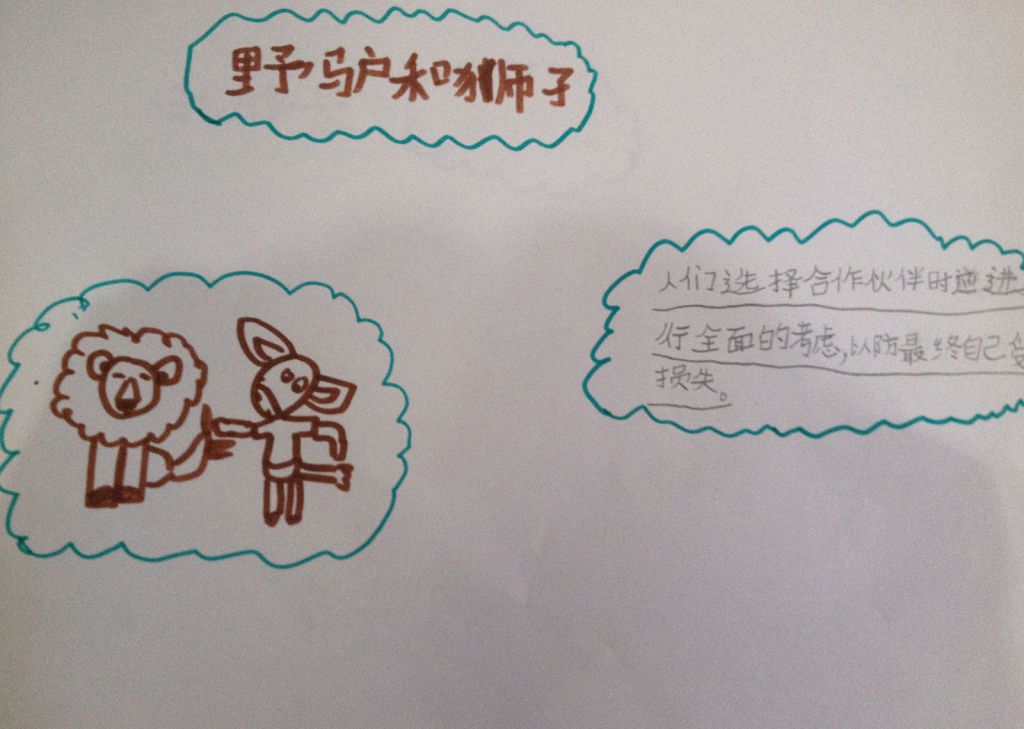 野驴和狮子
人们选择合作伙伴时进
行全面的考虑,以防最终自己受
损失。